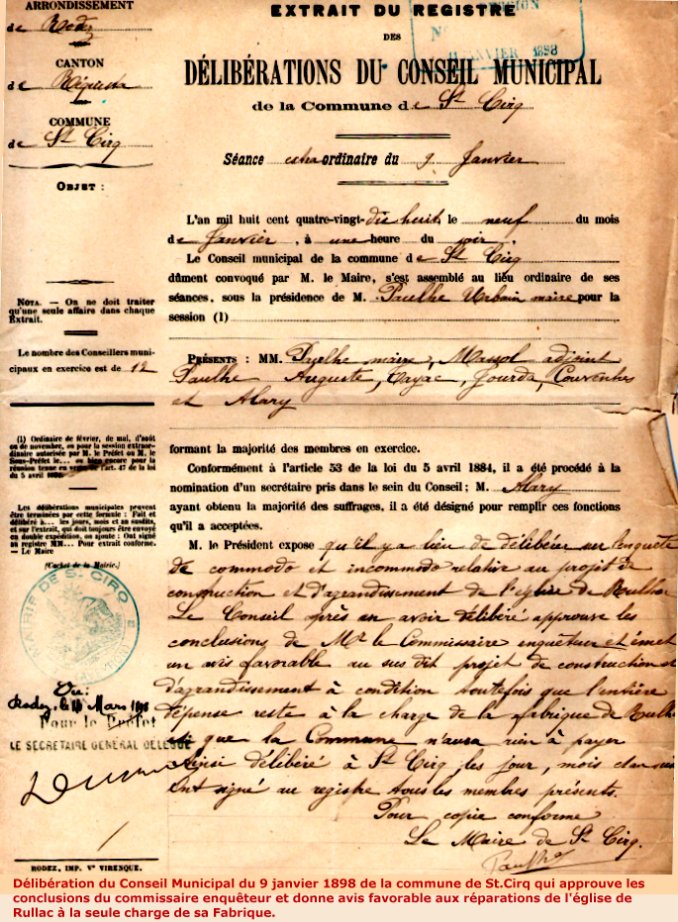 ARRONDISSEMENT
de Rodez
CANTON
de Réquista
COMMUNE
de St Cirq
OBJET :
NOTA. — On ne doit traiter
qu'une seule affaire dans chaque
Extrait.
Le nombre des Conseillers muni-
cipaux en exercice est de 12
(1) Ordinaire de février, de mai, d'août
ou de novembre, ou pour la session extraor-
dinaire autorisée par M. le Préfet ou M. le
Sous-Préfet le... ou bien encore pour la
réunion tenue en vertu de l'art. 47 de la loi
du 5 avril 1884.
Les délibérations municipales peuvent
être terminées par cette formule : Fait et
délibéré à... les jours, mois et an susdits,
et sur l'extrait, qui doit toujours être envoyé
en double expédition, on ajoute : Ont signé
au registre MM... Pour extrait conforme.
— Le Maire
(Cachet de la Mairie.)
MAIRIE DE ST CIRQ
Vu :
Rodez, le Mars
Pour le Préfet
LE SECRÉTAIRE GÉNÉRAL DÉLÉGUÉ
RODEZ, IMP. Ve VIRENQUE.
EXTRAIT DU REGISTRE
DES
JANVIER 1898
DÉLIBÉRATIONS DU CONSEIL MUNICIPAL
de la Commune de St Cirq
Séance extraordinaire du 9 Janvier
L'an mil huit cent quatre-vingt-dix huit, le neuf du mois
de Janvier, à une heure du soir,
Le Conseil municipal de la commune de St Cirq
dûment convoqué par M. le Maire, s'est assemblé au lieu ordinaire de ses
séances, sous la présidence de M. Paulhe Urbain maire pour la
session (1)
PRÉSENTS : MM. Paulhe maire, Massol adjoint
Paulhe Auguste, Cayac, Jourda,
et Alary
formant la majorité des membres en exercice.
Conformément à l'article 53 de la loi du 5 avril 1884, il a été procédé à la
nomination d'un secrétaire pris dans le sein du Conseil ; M. Alary
ayant obtenu la majorité des suffrages, il a été désigné pour remplir ces fonctions
qu'il a acceptées.
M. le Président expose qu'il y a lieu de délibérer sur l'enquête
de commodo et incommodo relative au projet de
construction et d'agrandissement de l'église de Rulhac
Le Conseil après en avoir délibéré approuve les
conclusions de Mr le Commissaire enquêteur et émet
un avis favorable au sus dit projet de construction et
d'agrandissement à condition toutefois que l'entière
dépense reste à la charge de la fabrique de Rulhac
et que la Commune n'aura rien à payer
Ainsi délibéré à St Cirq, les jour, mois et an susdits
Ont signé au registre tous les membres présents.
Pour copie conforme
Le Maire de St Cirq.
Paulhe
Délibération du Conseil Municipal du 9 janvier 1898 de la commune de St.Cirq qui approuve les
conclusions du commissaire enquêteur et donne avis favorable aux réparations de l'église de
Rullac à la seule charge de sa Fabrique.